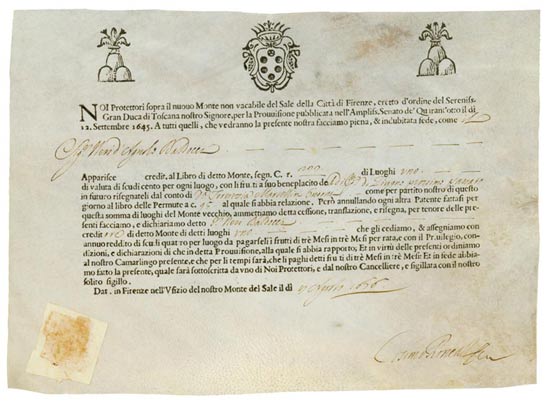 NOI Protettori sopra il nuouo Monte non vacabile del Sale della Città di Firenze, eretto d'ordine del Sereniss.
Gran Duca di Toscana nostro Signore, per la Prouuisione pubblicata nell'Ampliss. Senato de' Quarant'otto il dì
12. Settembre 1645. A tutti quelli, che vedranno la presente nostra facciamo piena, & indubitata fede, come
Apparisce credit. al Libro di detto Monte, segn. C. r. di Luoghi vno
di valuta di scudi cento per ogni luogo, con li frutti a suo beneplacito de
in futuro risegnateli dal conto di come per partito nostro di questo
giorno al libro delle Permute a c. al quale si abbia relazione. Però annullando ogni altra Patente fattasi per
questa somma di luoghi del Monte vecchio, ammettiamo detta cessione, translazione, e risegna, per tenore delle pre-
senti facciamo, e dichiariamo detto
credit. di detto Monte di detti luoghi vno che gli cediamo, & assegniamo con
annuo redd. to di scudi quattro per luogo da pagarseli i frutti di tre Mesi in tre Mesi per rata; e con li Priuilegio, con-
dizioni, e dichiarazioni di che in detta Prouuisione, alla quale si abbia rapporto, Et in virtù delle presenti ordiniamo
al nostro Camarlingo presente, e che per li tempi sarà, che li paghi detti frutti di tre Mesi in tre Mesi. Et in fede abbia-
mo fatto la presente, quale sarà sottoscritta da vno di Noi Protettori, e dal nostro Cancelliere, e sigillata con il nostro
solito sigillo.
Dat. in Firenze nell'Vfizio del nostro Monte del Sale il dì